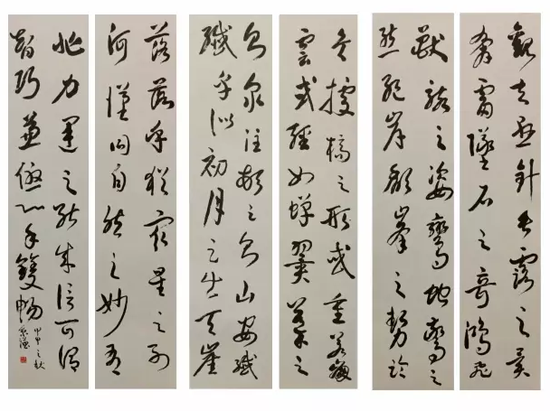 觀夫懸針垂露之異
奔雷墜石之奇鴻飛
獸駭之姿鸞舞蛇驚之
態絕岸頹峰之勢臨
危據槁之形或重若崩
雲或輕如蟬翼導之
則泉注頓之則山安纖
纖乎似初月之出天崖
落落乎猶眾星之列
河漢同自然之妙有
非力運之能成信可謂
智巧兼優心手雙暢
甲申之秋